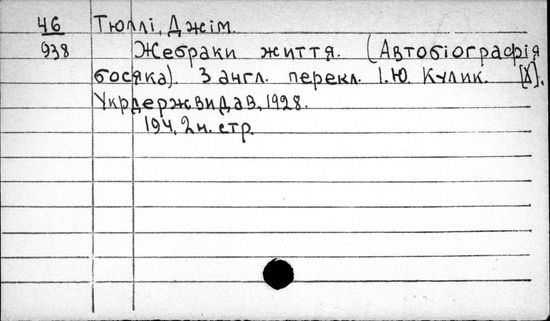 46 Тюллі, Джім.
938 Жебраки життя. (Автобіографія
босяка). З англ. перекл. І.Ю. Кулик. [Х].
Укрдержвидав, 1928.
194, 2 н. стр.